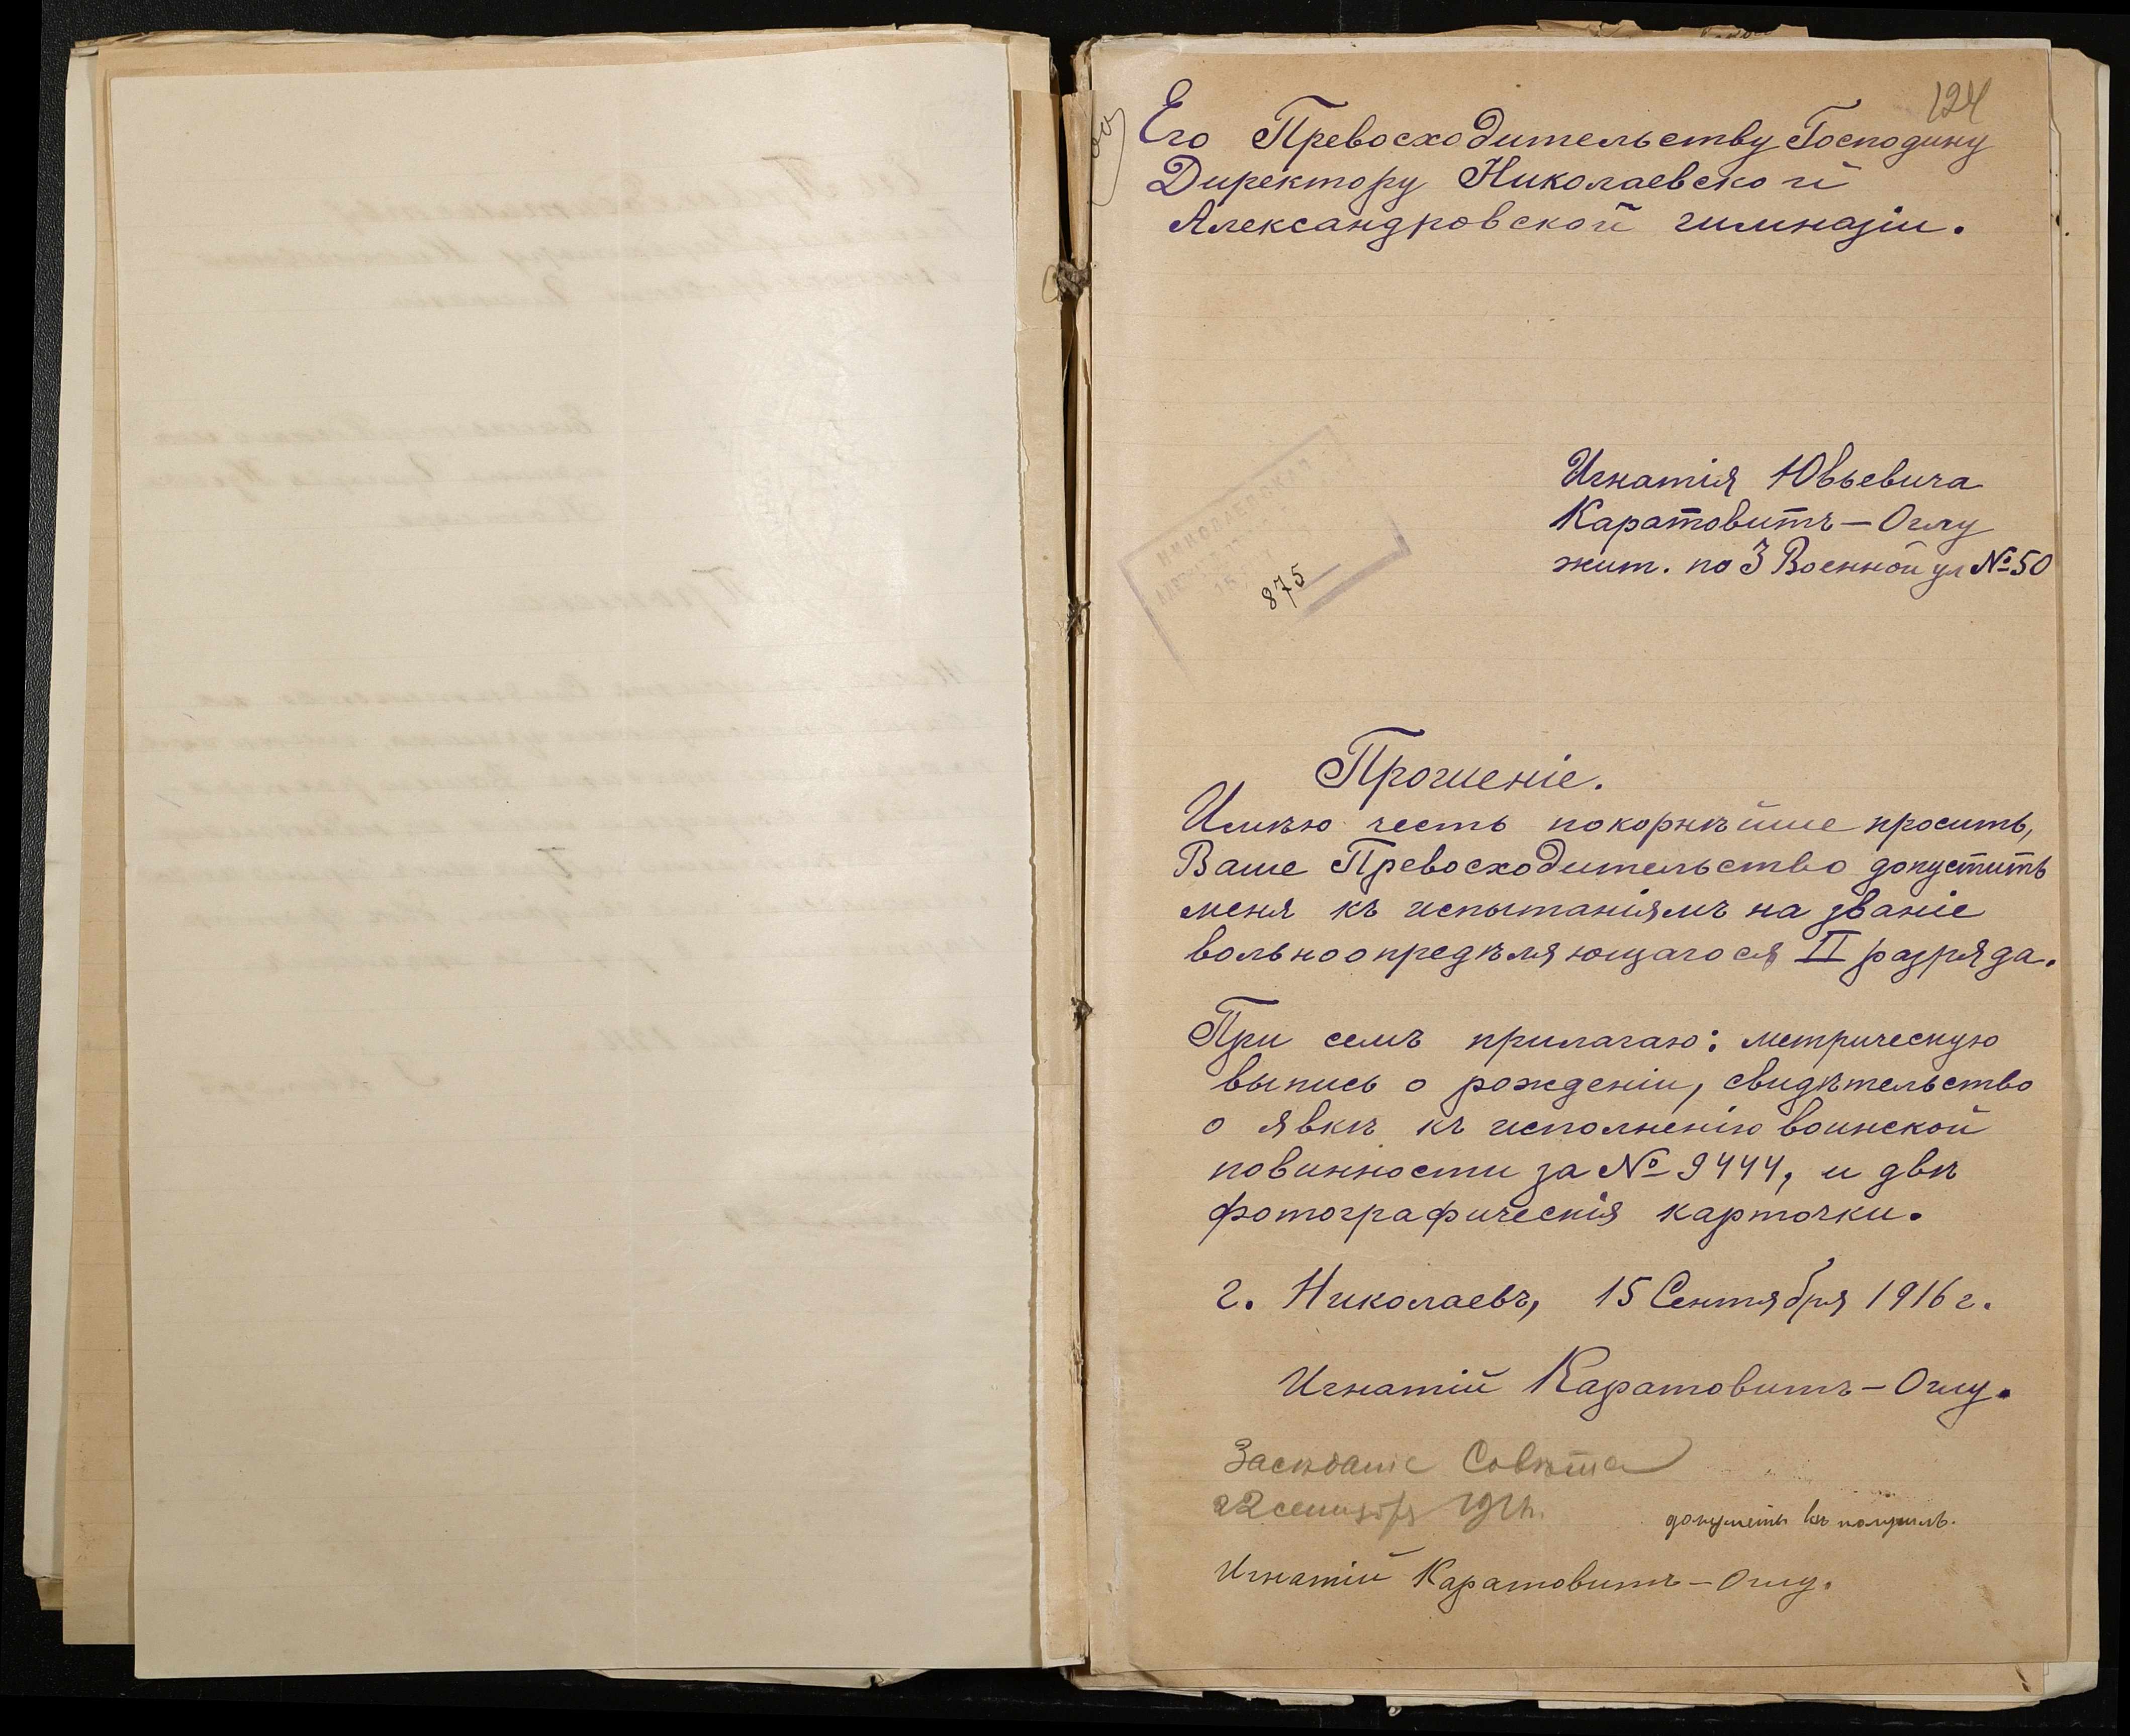 124
Его Превосходительству Господину
Директору Николаевской
Александровской гимназіи.
Игнатія Ювьевича
Каратовитъ-Оглу
жит. по 3 Военной ул №50
НИКОЛАЕВСКАЯ
875
Прошеніе.
Имѣю честь покорнѣйше просить,
Ваше Превосходительство допустить
меня къ испытаніямъ на званіе
вольноопредѣляющагося II разряда.
При семъ прилагаю: метрическую
выпись о рожденіи, свидѣтельство
о явкѣ къ исполненію воинской
повинности за № 9444, и двѣ
фотографическія карточки.
г. Николаевъ, 15 Сентября 1916 г.
Игнатій Каратовитъ-Оглу.
Засѣданіе Совѣта
22 сентября
документы получилъ.
Игнатій Каратовитъ-Оглу.